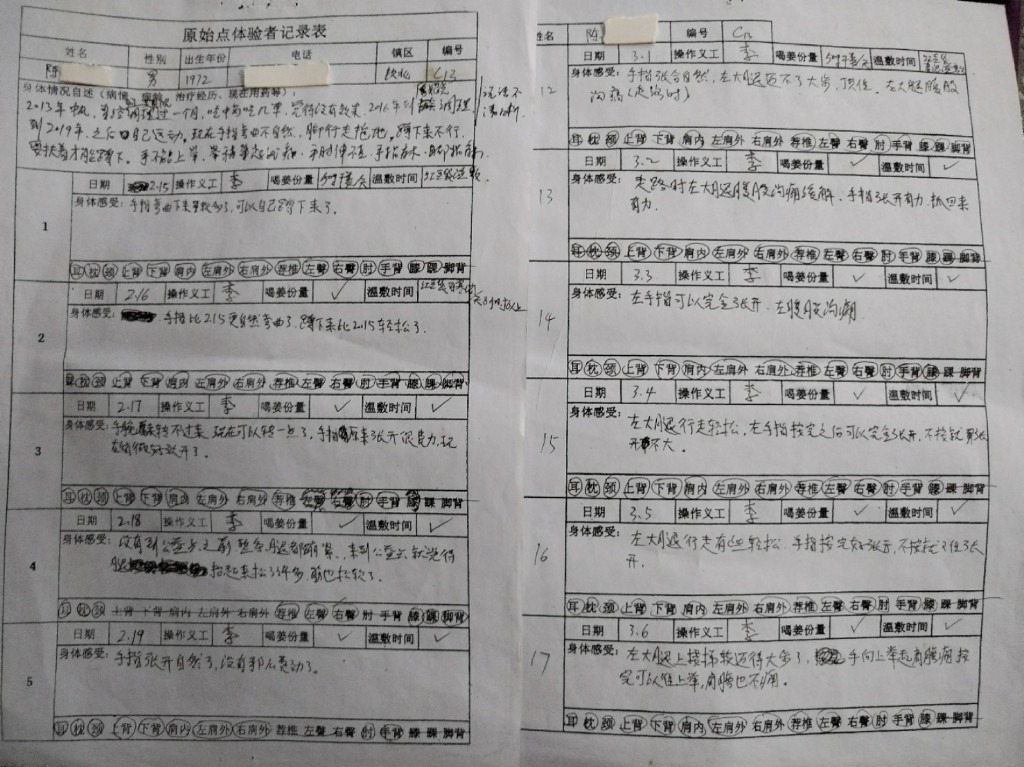 原始点体验者记录表
姓名 性别 出生年份 电话 镇区 编号
陈 男 1972 C13
身体情况自述（病情、病龄、治疗经历、现在用药等）：
到2019年，之后自己运动，现在手指弯曲不自然，脚行走拖地。蹲下来不行，
要扶着才能蹲下。手不能上举，
1
日期 2.15 操作义工 李 喝姜份量 温敷时间
身体感受：手指弯曲下来 了，可以自己蹲下来了。
耳 枕 颈 上背 下背 肩内 左肩外 右肩外 荐椎 左臀 右臀 肘 手背 膝 踝 脚背
2
日期 2.16 操作义工 李 喝姜份量 ✓ 温敷时间
身体感受： 手指比215更自然弯曲了，蹲下来比2015轻松了。
耳 枕 颈 上背 下背 肩内 左肩外 右肩外 荐椎 左臀 右臀 肘 手背 膝 踝 脚背
3
日期 2.17 操作义工 李 喝姜份量 ✓ 温敷时间 ✓
身体感受：手腕 转不过来，现在可以转一点了，手指 来张开很费力，现
在 张开了。
耳 枕 颈 上背 下背 肩内 左肩外 右肩外 荐椎 左臀 右臀 肘 手背 膝 踝 脚背
4
日期 2.18 操作义工 李 喝姜份量 ✓ 温敷时间 ✓
身体感受：没有到公益点之前整条腿都崩紧，来到公益点就觉得
腿 抬起来松了许多，筋也松软了。
耳 枕 颈 上背 下背 肩内 左肩外 右肩外 荐椎 左臀 右臀 肘 手背 膝 踝 脚背
5
日期 2.19 操作义工 李 喝姜份量 ✓ 温敷时间 ✓
身体感受：手指张开自然了，没有那么费力了。
耳 枕 颈 上背 下背 肩内 左肩外 右肩外 荐椎 左臀 右臀 肘 手背 膝 踝 脚背
姓名 陈 编号 C13
12
日期 3.1 操作义工 李 喝姜份量 温敷时间
身体感受：手指张合自然，左大腿迈不了大步，顶住。左大腿腹股
沟痛（走路时）
耳 枕 颈 上背 下背 肩内 左肩外 右肩外 荐椎 左臀 右臀 肘 手背 膝 踝 脚背
13
日期 3.2 操作义工 李 喝姜份量 ✓ 温敷时间 ✓
身体感受：走路时左大腿腹股沟痛缓解，手指张开有力，抓回来
有力。
耳 枕 颈 上背 下背 肩内 左肩外 右肩外 荐椎 左臀 右臀 肘 手背 膝 踝 脚背
14
日期 3.3 操作义工 李 喝姜份量 ✓ 温敷时间 ✓
身体感受：左手指可以完全张开，左腹股沟痛
耳 枕 颈 上背 下背 肩内 左肩外 右肩外 荐椎 左臀 右臀 肘 手背 膝 踝 脚背
15
日期 3.4 操作义工 李 喝姜份量 ✓ 温敷时间 ✓
身体感受：左大腿行走轻松，左手指按完之后可以完全张开，不按就 张
开不大。
耳 枕 颈 上背 下背 肩内 左肩外 右肩外 荐椎 左臀 右臀 肘 手背 膝 踝 脚背
16
日期 3.5 操作义工 李 喝姜份量 ✓ 温敷时间 ✓
身体感受：左大腿行走有些轻松，手指按完好张开，不按就 张
开。
耳 枕 颈 上背 下背 肩内 左肩外 右肩外 荐椎 左臀 右臀 肘 手背 膝 踝 脚背
17
日期 3.6 操作义工 李 喝姜份量 ✓ 温敷时间 ✓
身体感受：左大腿上楼梯较迈得大步了， 手向上举起肩膀痛，按
完可以往上举，肩膀也不痛。
耳 枕 颈 上背 下背 肩内 左肩外 右肩外 荐椎 左臀 右臀 肘 手背 膝 踝 脚背